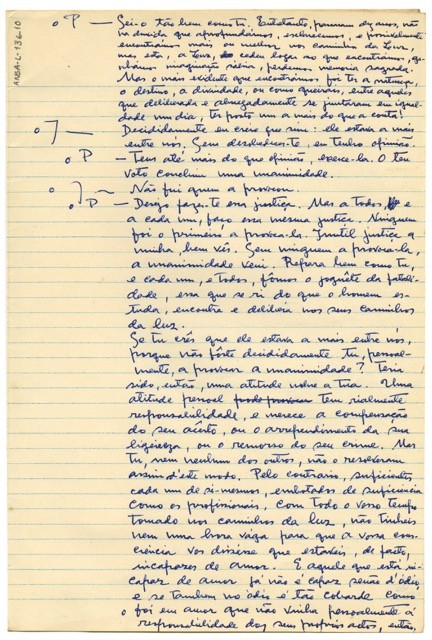 ANBA-L-136-10
o P — Sei-o tão bem como tu. Entretanto, passaram dez anos, não
ha duvida que aprofundámos, esclarecemos, e possivelmente
encontrámos mais ou melhor nos caminhos da Luz,
ne, esta, a Luz, cedeu logar ao que encontramos, ga-
nhámos imaginação sabia, perdemos memoria sagrada.
Mas o mais evidente que encontrámos foi ter a natureza,
o destino, a divindade, ou como queiram, entre aqueles
que deliberada e abnegadamente se juntaram em igual-
dade um dia, ter posto um a mais do que a conta!
o J — Decididamente eu creio que sim: ele estava a mais
entre nós. Sem desobedecer-te, eu tenho opinião.
o P — Tens até mais do que opinião, exerce-la. O teu
voto concluiu uma unanimidade.
o J — Não fui quem a provocou.
o P — Desejo fazer-te essa justiça. Mas a todos, e
a cada um, faço essa mesma justiça. Ninguem
foi o primeiro a provoca-la. Inutil justiça a
minha, bem vês. Sem ninguem a provocá-la,
a unanimidade veio. Repara bem como tu,
e cada um, e todos, fômos o joguête da fatali-
dade, essa que se ri do que o homem es-
tuda, encontra e delibera nos seus caminhos
da luz.
Se tu crês que ele estava a mais entre nós,
porque não fôste decididamente tu, pessoal-
mente, a provocar a unanimidade? Teria
sido, então, uma atitude nobre a tua. Uma
atitude pessoal tem rialmente
responsabilidade, e merece a compensação
do seu acêrto, ou o arrependimento da sua
ligeireza, ou o remorso do seu crime. Mas
tu, nem nenhum dos outros, não o resolveram
assim d'este modo. Pelo contrario, suficientes
cada um de si-mesmos, embotados de suficiencia
como os profissionais, com todo o vosso tempo
tomado nos caminhos da luz, não tinheis
nem uma hora vaga para que a vossa cons-
ciência vos dissesse que estaveis, de facto,
incapazes de amor. E aquele que está in-
capaz de amor já não é capaz senão d'ódio,
e se tambem no ódio é tão cobarde como
o foi em amor que não vinha pessoalmente á
responsabilidade dos seus proprios actos, então,